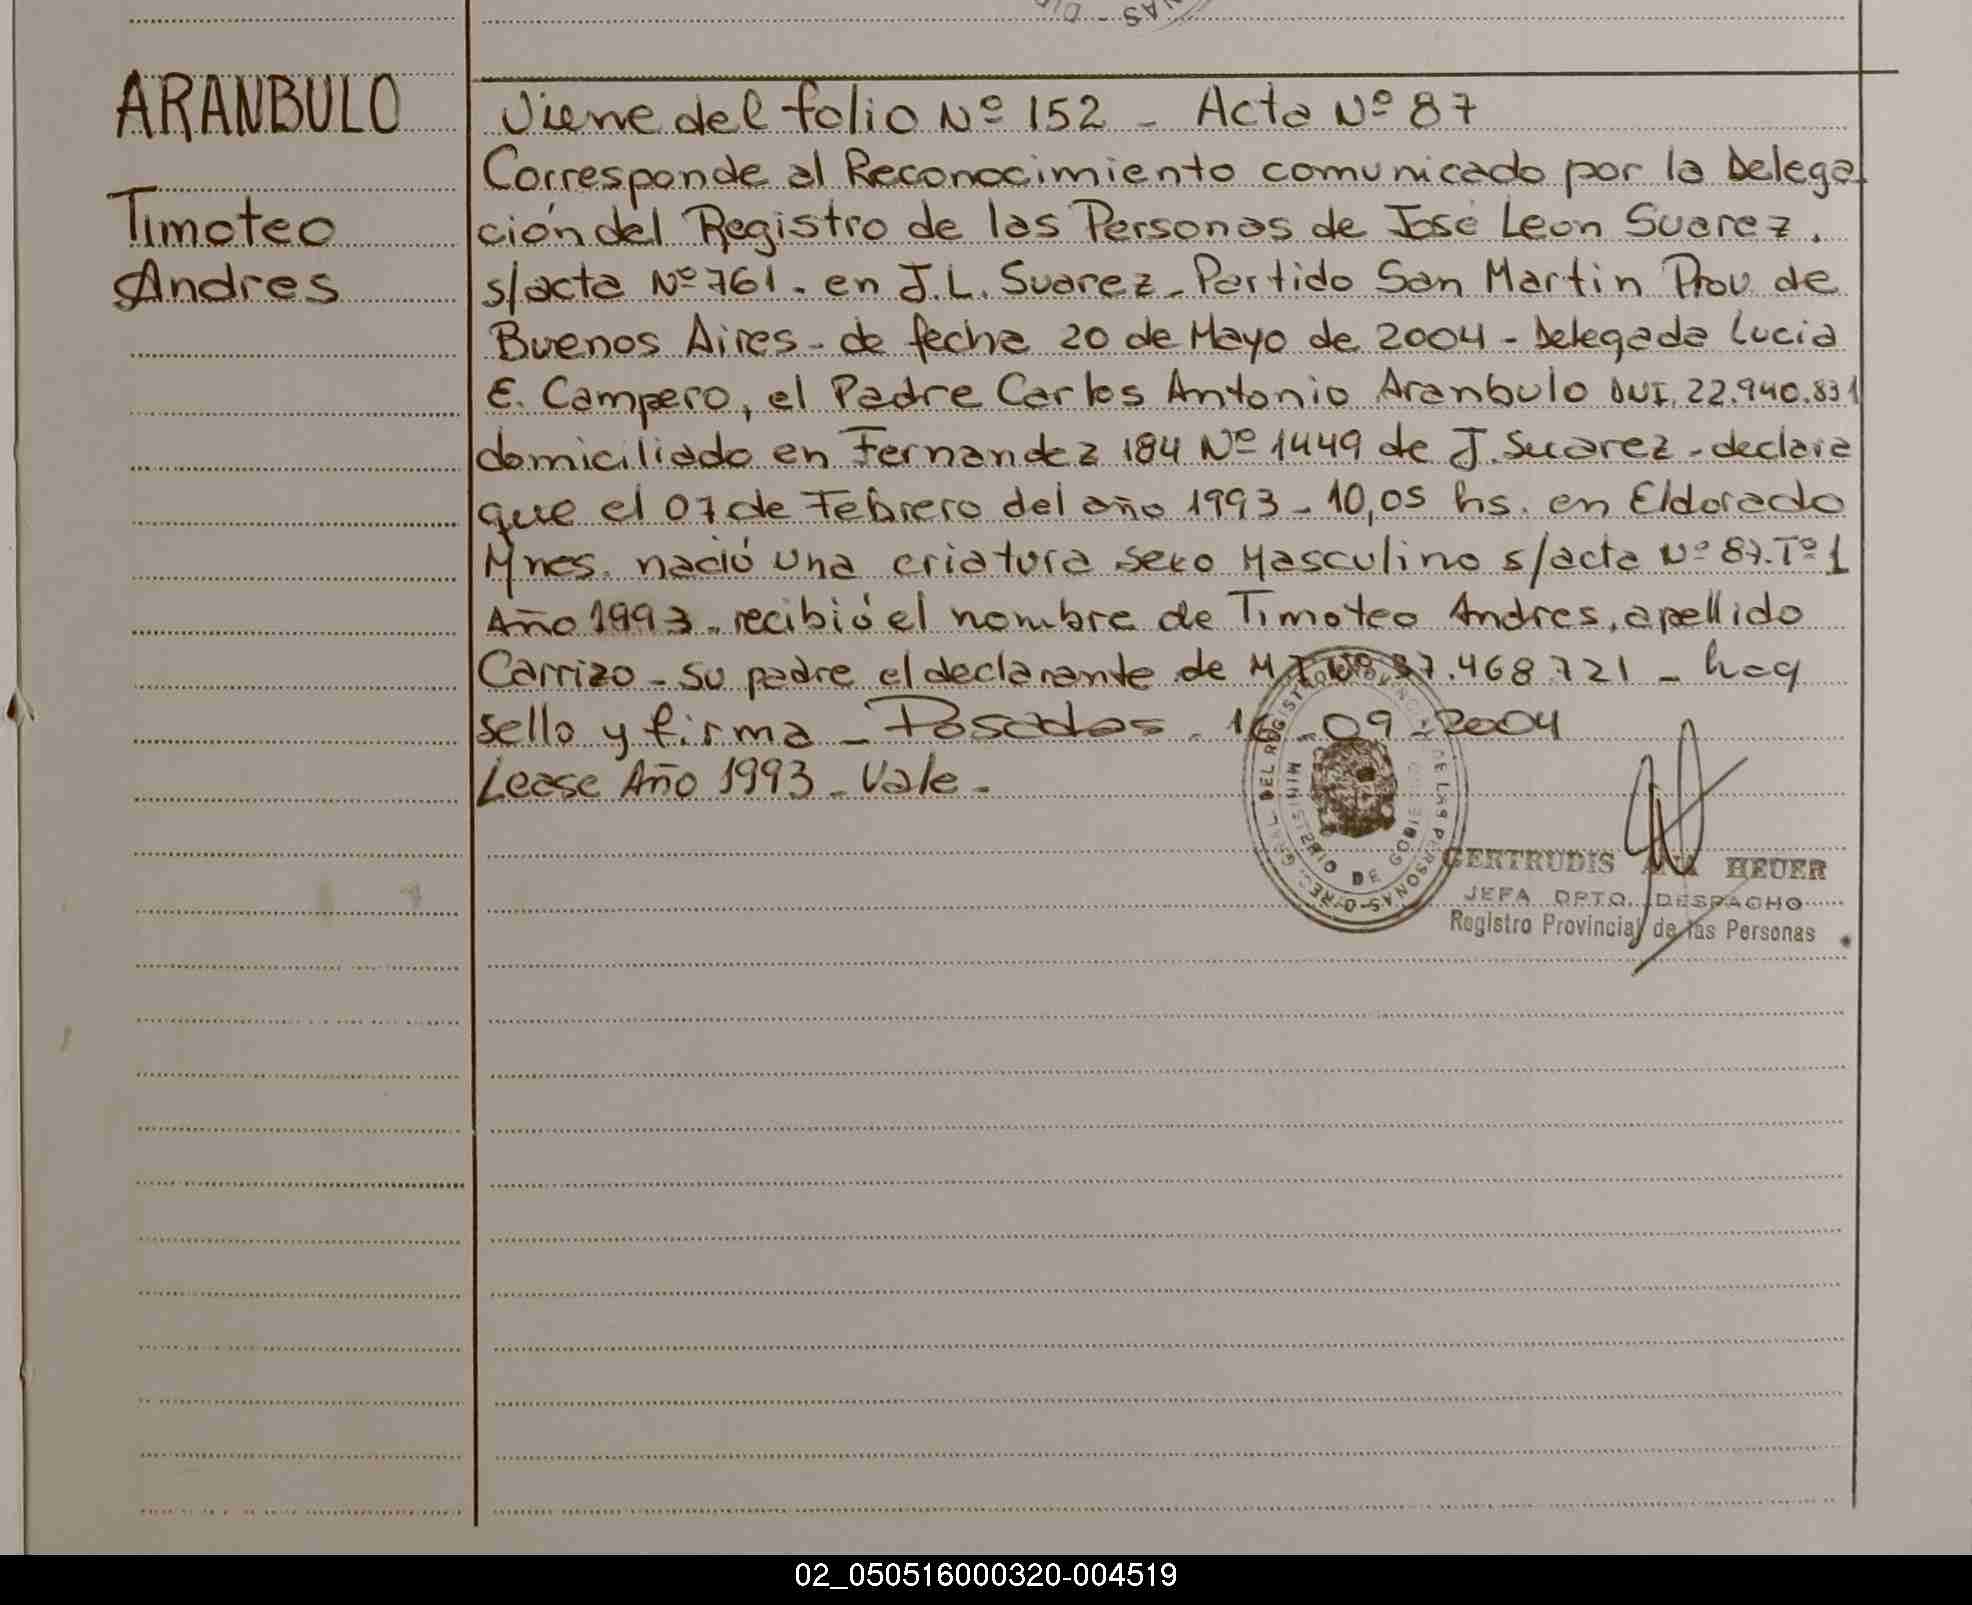 ARANBULO
Timoteo
Andres
Viene del folio Nº 152 - Acta Nº 87
Corresponde al Reconocimiento comunicado por la Delega
ción del Registro de las Personas de José Leon Suarez.
s/acta Nº 761. en J.L. Suarez - Partido San Martin Prov de
Buenos Aires - de fecha 20 de Mayo de 2004 - Delegada Lucia
E. Campero, el Padre Carlos Antonio Aranbulo DNI. 22.940.831
domiciliado en Fernandez 184 Nº 1449 de J. Suarez - declara
que el 07 de Febrero del año 1993 - 10,05 hs. en Eldorado
Mnes. nació una criatura sexo Masculino s/acta Nº 87. Tº 1
Año 1993 - recibió el nombre de Timoteo Andres, apellido
Carrizo - su padre el declarante de M I Nº 37.468.721 - hag
sello y firma - Posadas - 16 - 09 - 2004
Lease Año 1993 - Vale -
GERTRUDIS ANA HEUER
JEFA DPTO. DESPACHO
Registro Provincial de las Personas
MINISTERIO DE GOBIE
DE LAS PERSONAS
02_050516000320-004519